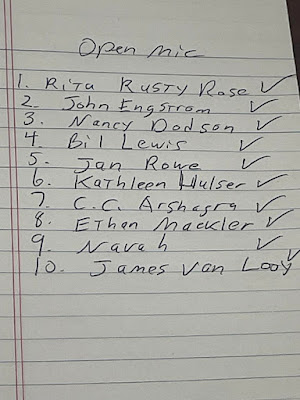 Open Mic
1. Rita Rusty Rose ✓
2. John Engstrom ✓
3. Nancy Dodson ✓
4. Bil Lewis ✓
5. Jan Rowe ✓
6. Kathleen Hulser ✓
7. C.C. Arshagra ✓
8. Ethan Mackler ✓
9. Navah ✓
10. James Van Looy ✓